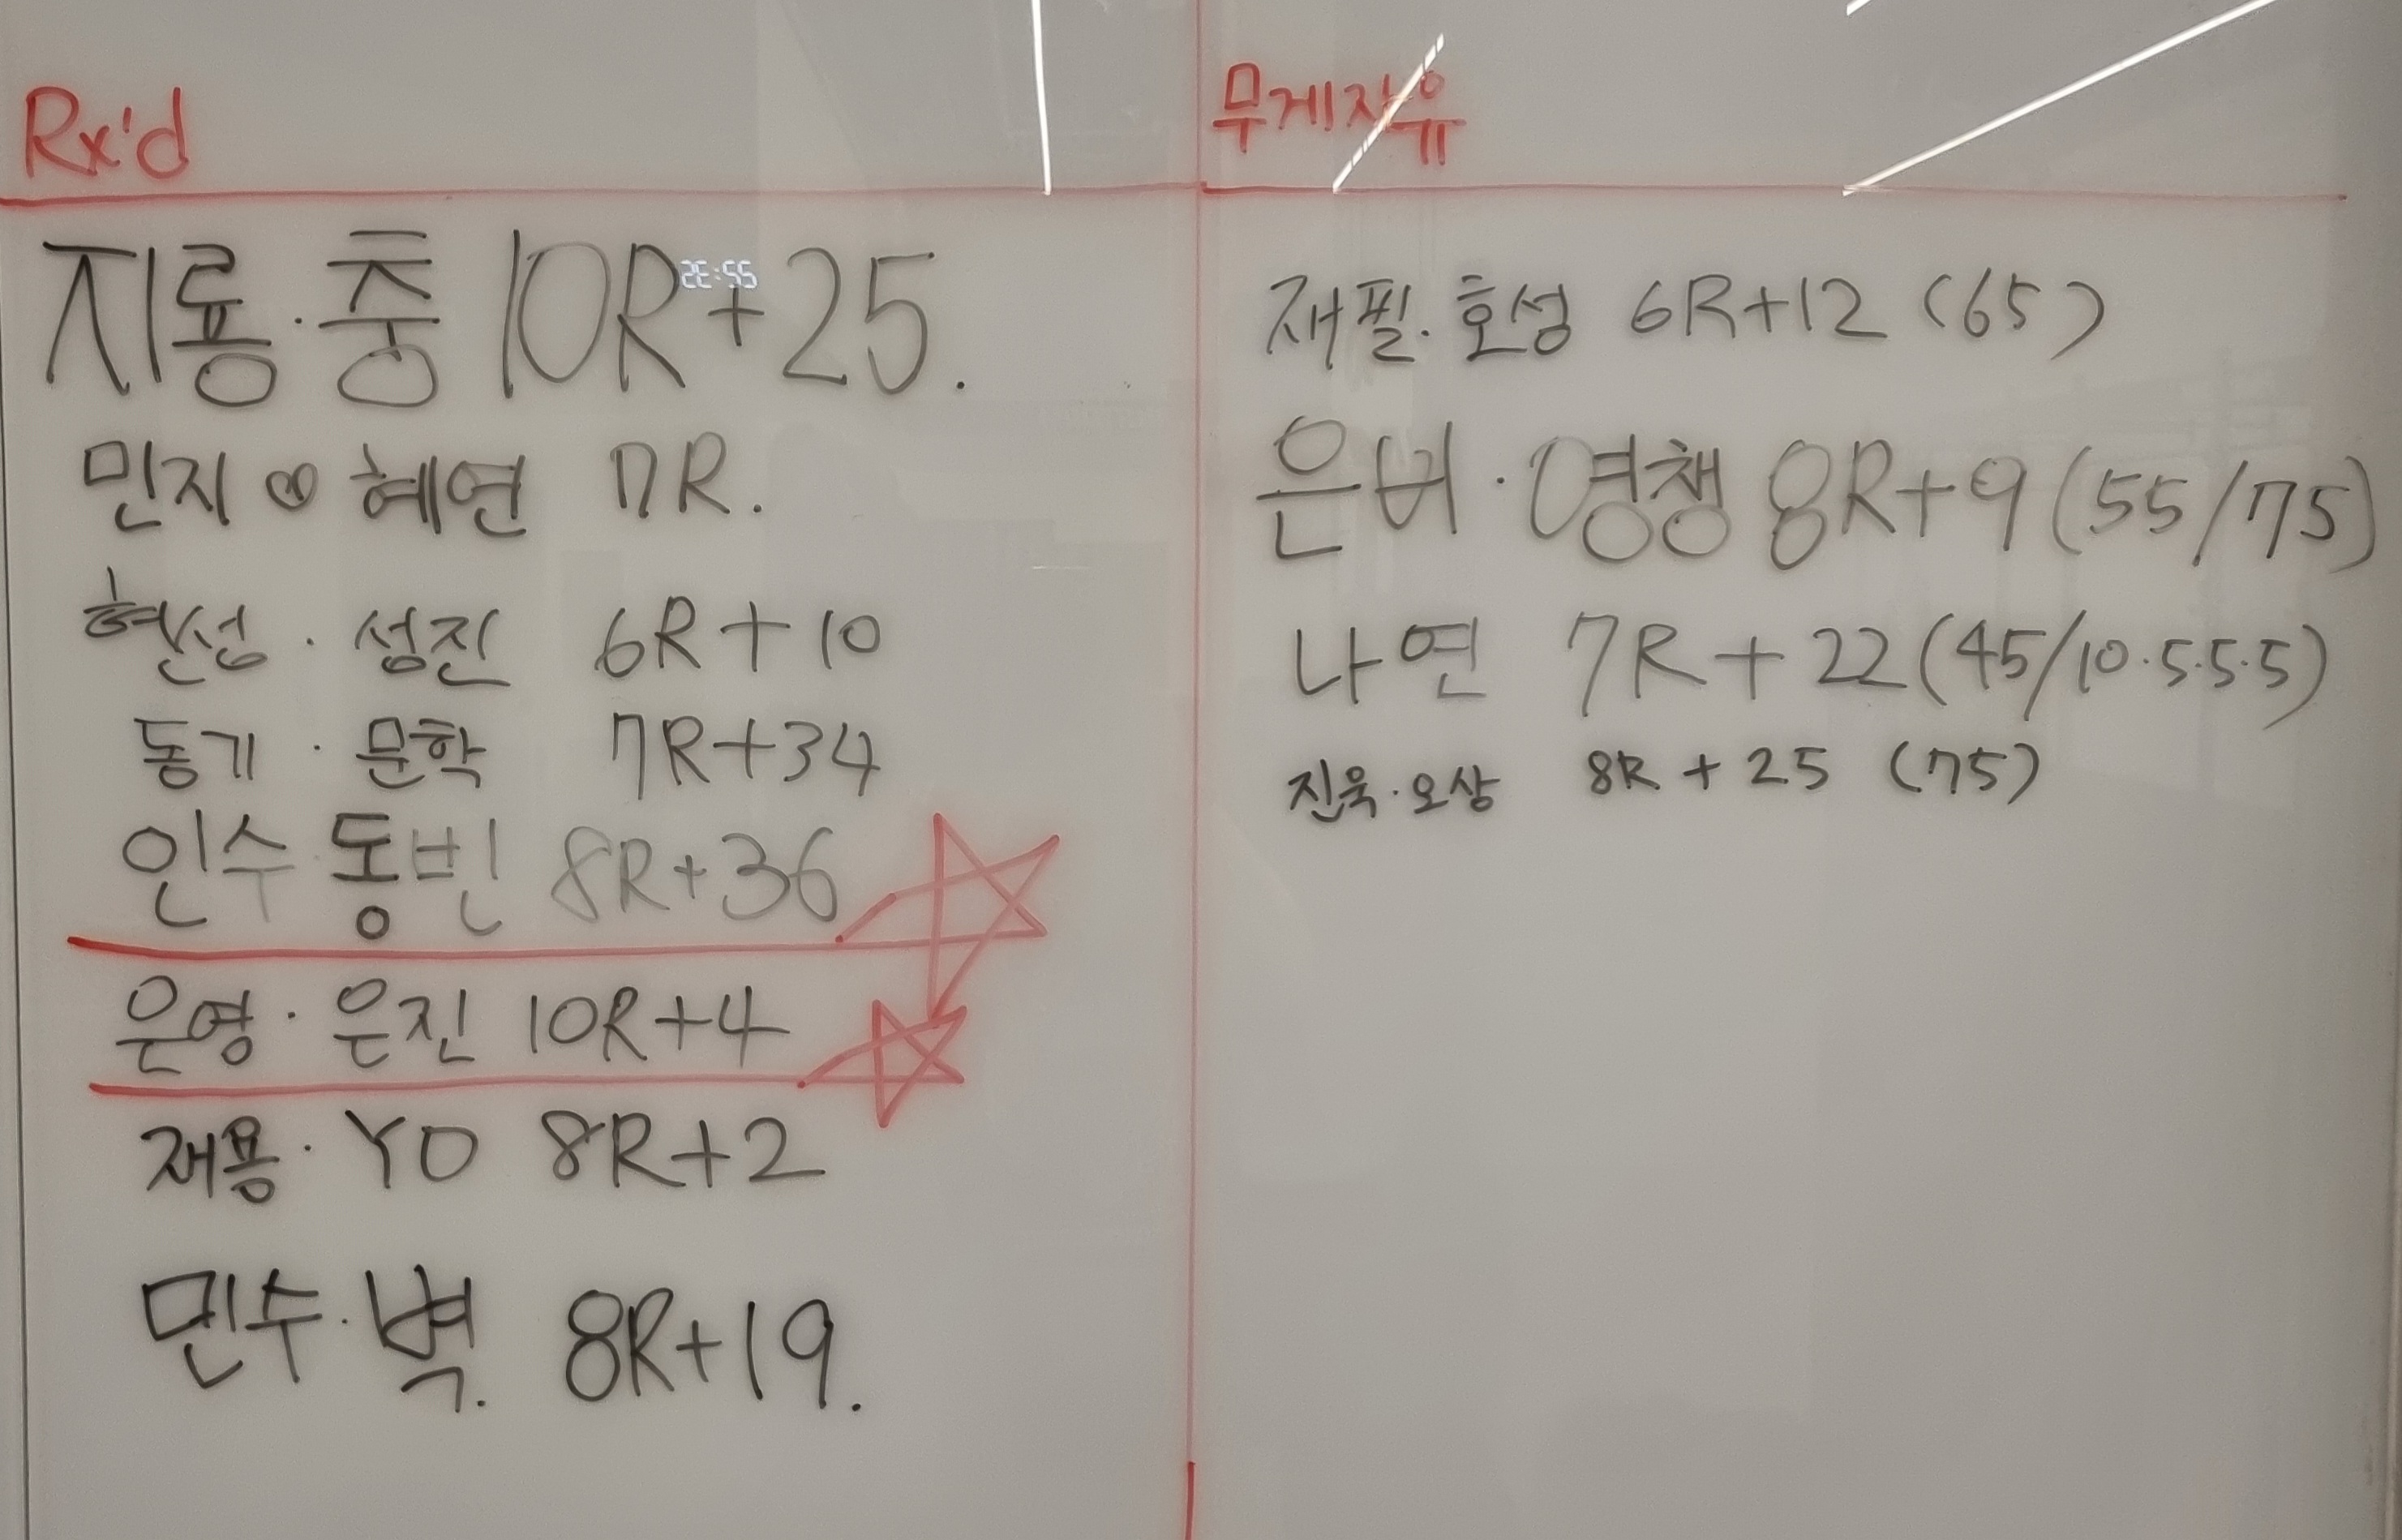 Rx'd
지룡·충 10R+25.
민지♡혜연 7R.
현섭·성진 6R+10
동기·문학 7R+34
인수·동빈 8R+36
은영·은진 10R+4
재용·YO 8R+2
민수·벽. 8R+19.
무게자유
재필·호성 6R+12 (65)
은버·영챙 8R+9 (55/75)
나연 7R+22 (45/10·5·5·5)
진욱·오상 8R+25 (75)